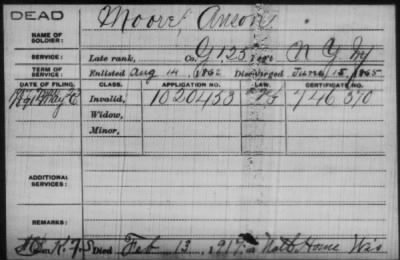 DEAD
NAME OF SOLDIER: Moore, Anson
SERVICE: Late rank, Co. G, 125 Reg't N Y Inf
TERM OF SERVICE: Enlisted Aug 14, 1862 Discharged June 15, 1865
DATE OF FILING. CLASS. APPLICATION NO. LAW. CERTIFICATE NO.
Invalid, 1020453 746370
Widow,
Minor,
ADDITIONAL SERVICES:
REMARKS:
Died Feb 13, 1917 in Natl. Home Wis